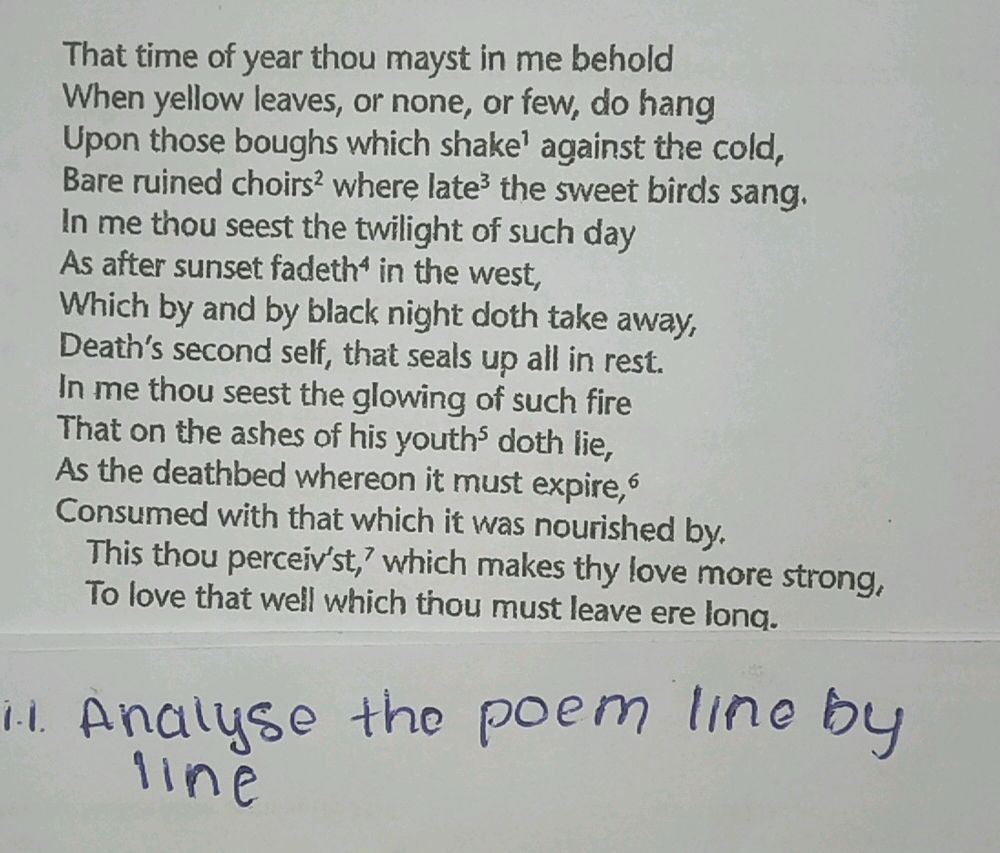 That time of year thou mayst in me behold
When yellow leaves, or none, or few, do hang
Upon those boughs which shake¹ against the cold,
Bare ruined choirs² where late³ the sweet birds sang.
In me thou seest the twilight of such day
As after sunset fadeth⁴ in the west,
Which by and by black night doth take away,
Death's second self, that seals up all in rest.
In me thou seest the glowing of such fire
That on the ashes of his youth⁵ doth lie,
As the deathbed whereon it must expire,⁶
Consumed with that which it was nourished by.
This thou perceiv'st,⁷ which makes thy love more strong,
To love that well which thou must leave ere long.
1.1. Analyse the poem line by
line